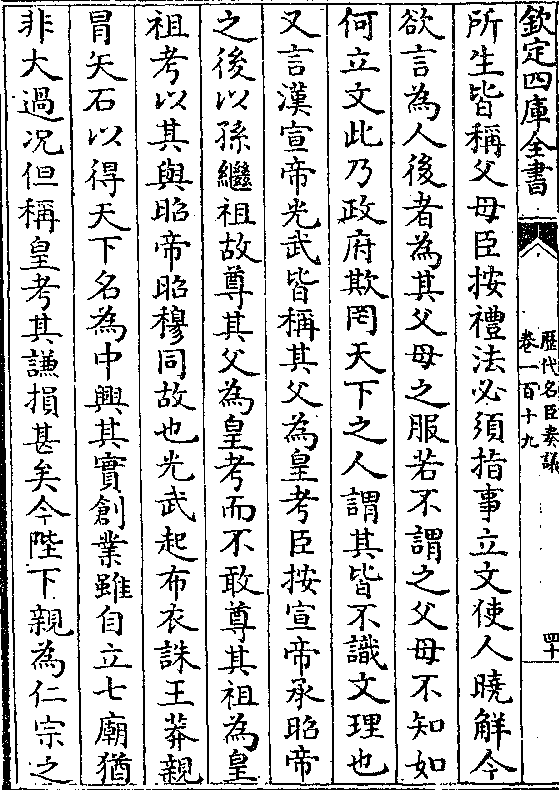 欽定四庫全書
歷代名臣奏議
卷一百十九
四十
所生皆稱父母臣按禮法必須指事立文使人曉解今
欲言為人後者為其父母之服若不謂之父母不知如
何立文此乃政府欺罔天下之人謂其皆不識文理也
又言漢宣帝光武皆稱其父為皇考臣按宣帝承昭帝
之後以孫繼祖故尊其父為皇考而不敢尊其祖為皇
祖考以其與昭帝昭穆同故也光武起布衣誅王莽親
冒矢石以得天下名為中興其實創業雖自立七廟猶
非大過况但稱皇考其謙損甚矣今陛下親為仁宗之